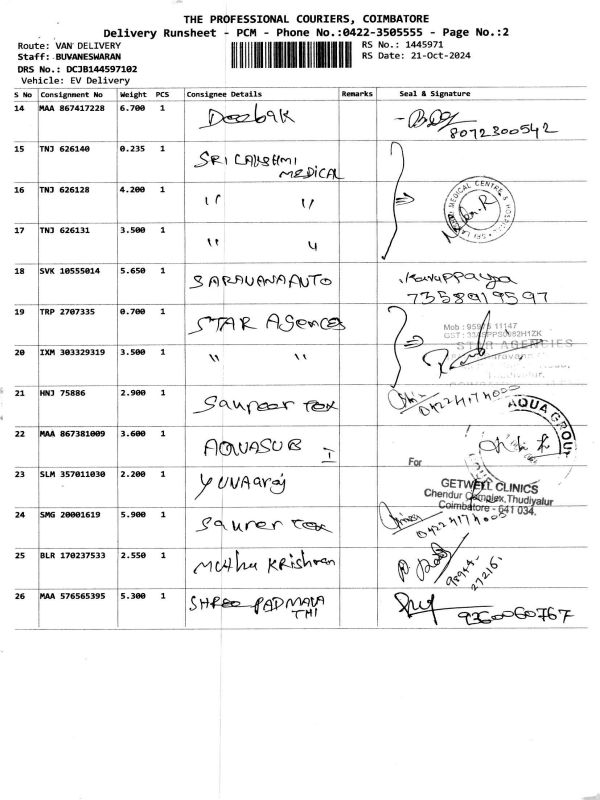 THE PROFESSIONAL COURIERS, COIMBATORE
Delivery Runsheet - PCM - Phone No.:0422-3505555 - Page No.:2
Route: VAN DELIVERY
RS No.: 1445971
Staff: BUVANESWARAN
RS Date: 21-Oct-2024
DRS No.: DCJB144597102
Vehicle: EV Delivery
S No Consignment No Weight PCS Consignee Details Remarks Seal & Signature
14 MAA 867417228 6.700 1 Deebak 8072300542
15 TNJ 626140 0.235 1 SRI LAKSHMI MEDICAL
16 TNJ 626128 4.200 1 " "
MEDICAL CENTRE &
17 TNJ 626131 3.500 1 " "
18 SVK 10555014 5.650 1 SARAVANA AUTO
7358919597
19 TRP 2707335 0.700 1 STAR Agences
STAR AGENCIES
20 IXM 303329319 3.500 1 " "
21 HNJ 75886 2.900 1 0422 4174000
AQUA GROUP
22 MAA 867381009 3.600 1 AQUASUB I
For
23 SLM 357011030 2.200 1 YUVAaraj
GETWELL CLINICS
Chendur Complex, Thudiyalur
Coimbatore - 641 034.
24 SMG 20001619 5.900 1 0422 4174000
25 BLR 170237533 2.550 1 Muthu KRishnan
26 MAA 576565395 5.300 1 SHREE PADMAVATHI 9360060767